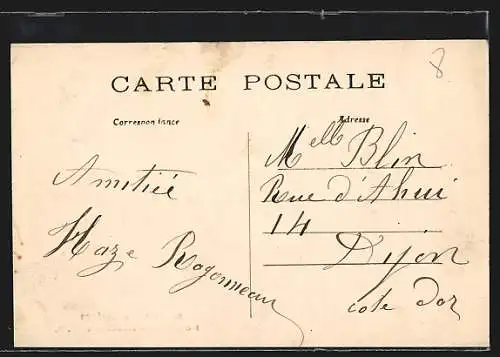 CARTE POSTALE
8
Correspondance
Adresse
Amitiée
Melle Blin
Rue d'Ahui
14
Dyon
cote dor